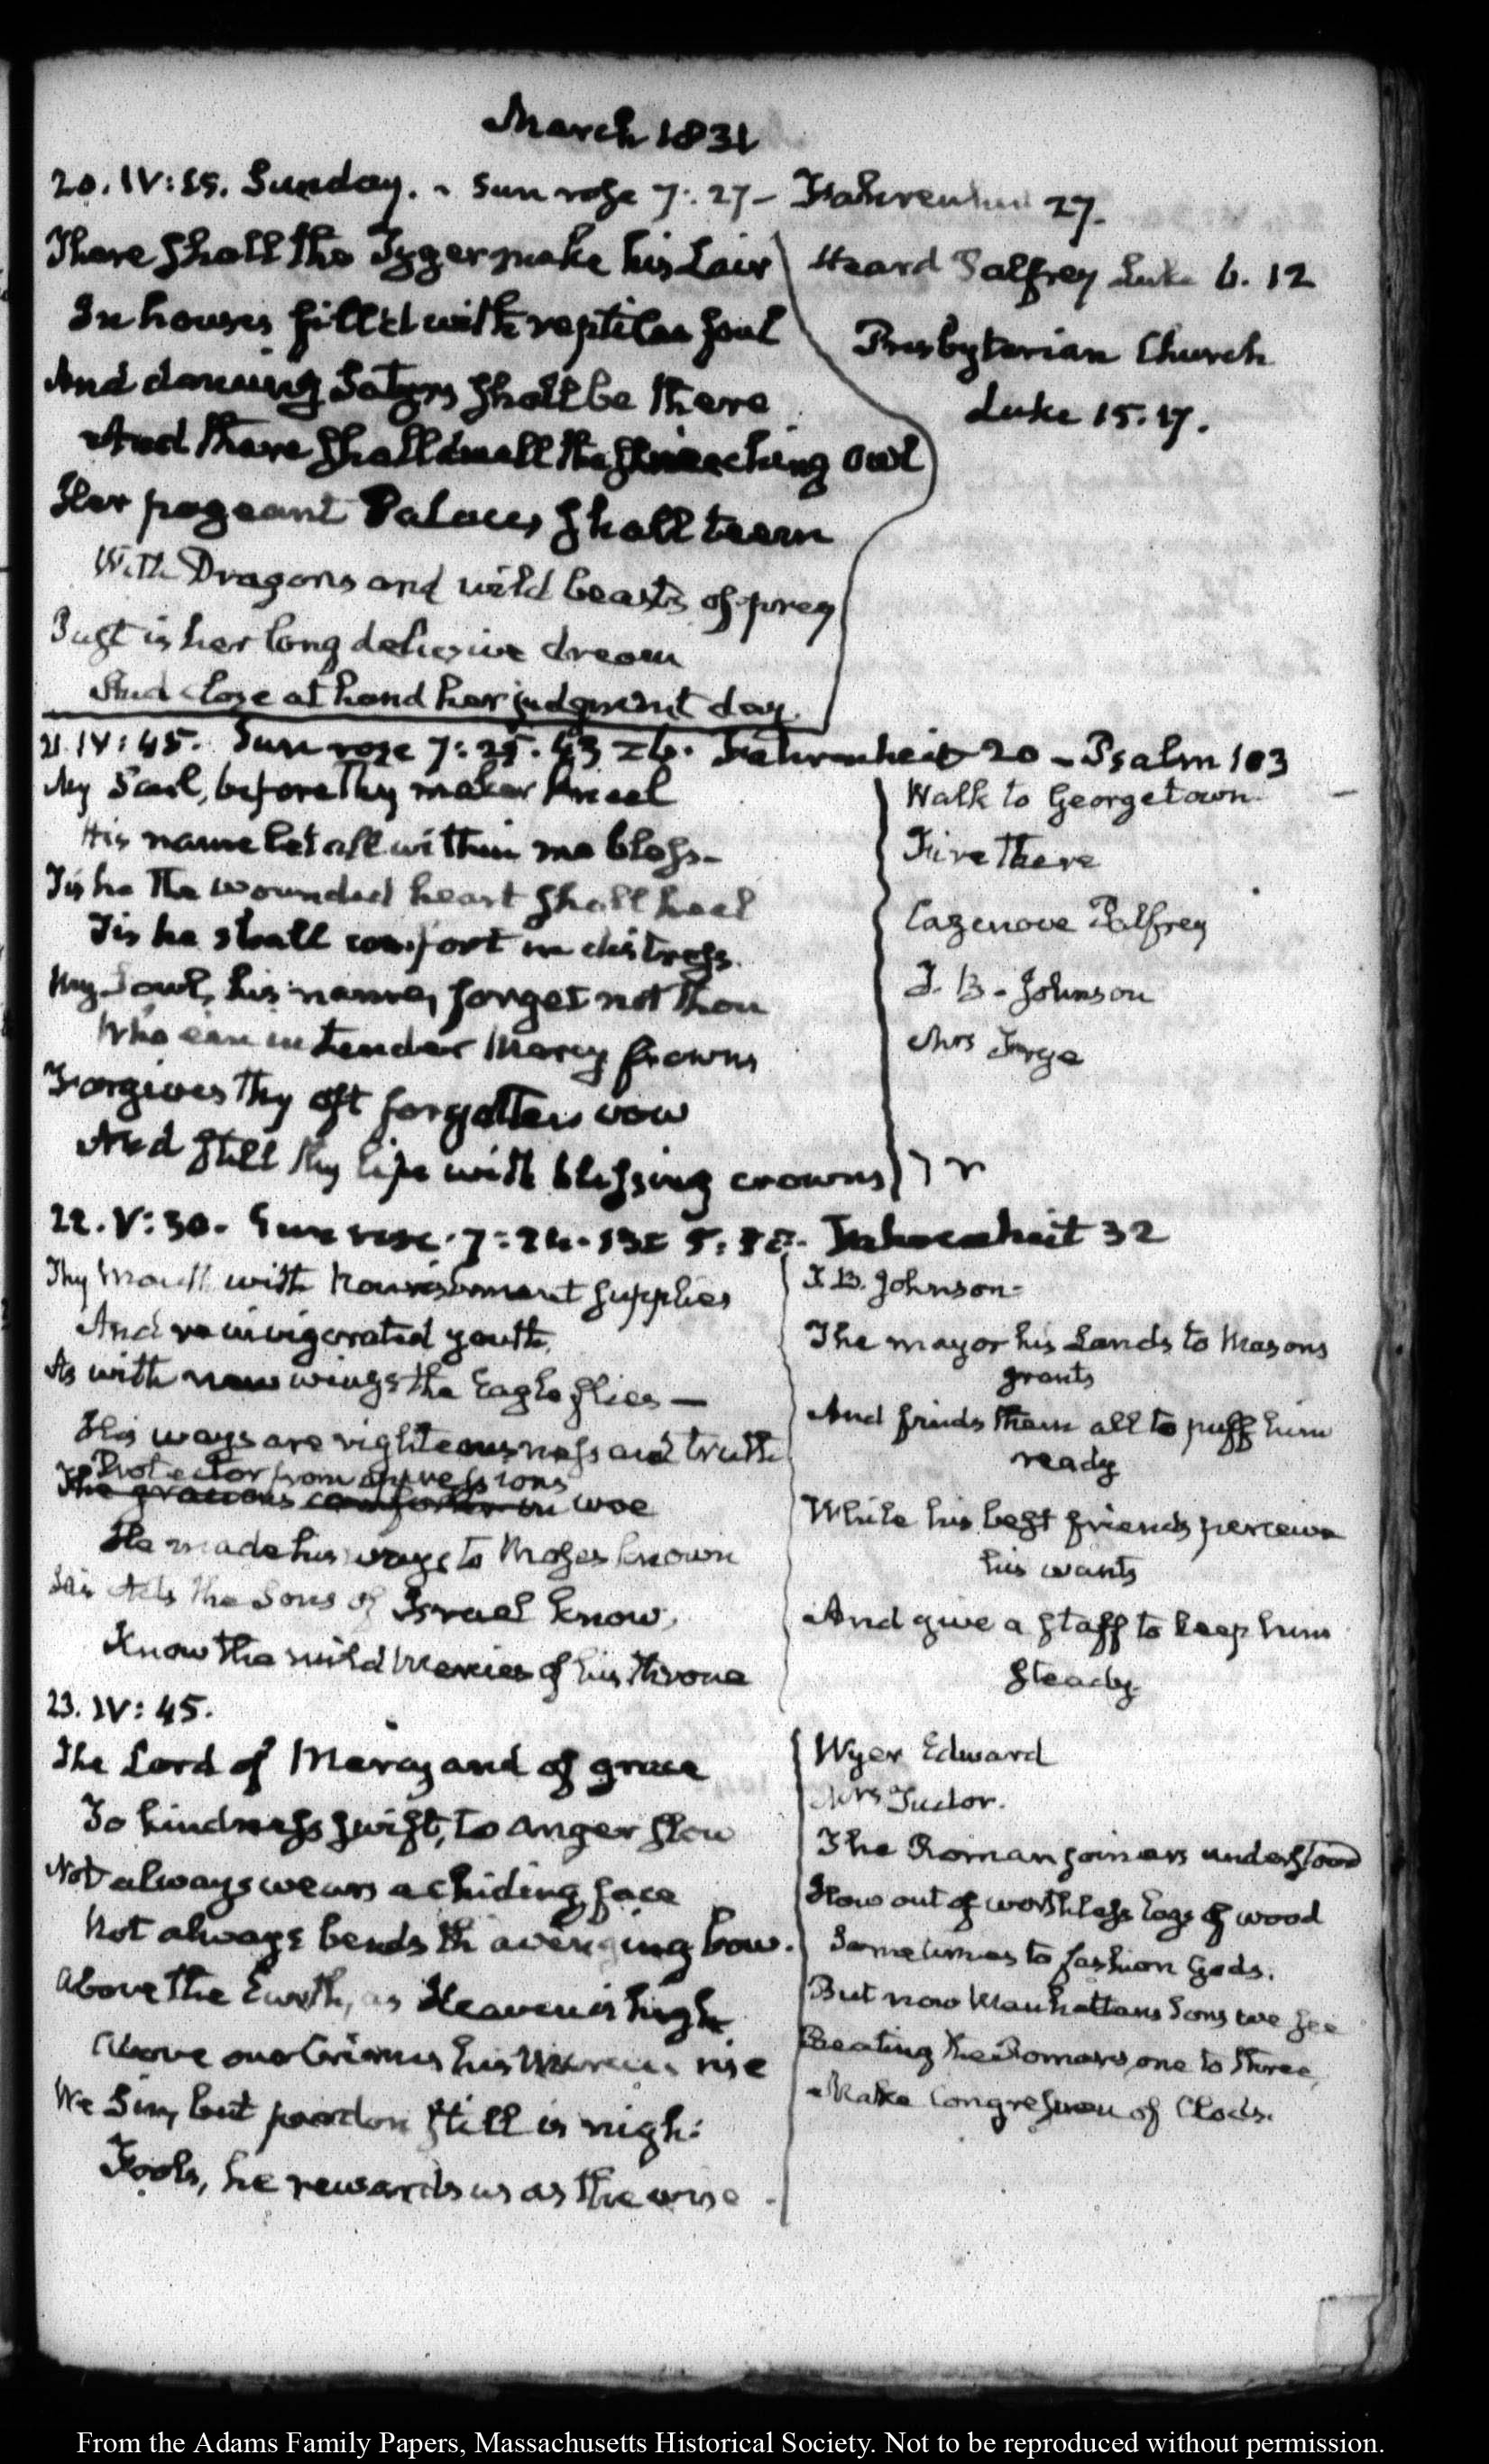 March 1831
20. IV: 15. Sunday. - Sun rose 7: 27 - Fahrenheit 27.
There shall the Tyger make his Lair
In houses fill'd with reptiles foul
And dancing Satyrs shall be there
And there shall dwell the screeching owl
Her pageant Palaces shall teem
With Dragons and wild beasts of prey
Past is her long delusive dream
And close at hand her judgment day.
Heard Palfrey Luke 6. 12
Presbyterian Church
Luke 15. 17.
21. IV: 45. Sun rose 7: 25. Fahrenheit 20 - Psalm 103
My Soul, before thy maker kneel
His name let all within me bless -
Tis he the wounded heart shall heal
Tis he shall comfort in distress.
My Soul, his name, forget not thou
Who e'en in tender Mercy frowns
Forgives thy oft forgotten vow
And still thy life with blessing crowns
Walk to Georgetown.
Fire there
Cazenove Palfrey
J. B. Johnson
Mrs
22. V: 30. Sun rose 7: 24. Fahrenheit 32
Thy Mouth with Nourishment supplies
And reinvigorated youth,
As with new wings the Eagle flies —
His ways are righteousness and truth
Protector from oppressions
The gracious comforter in woe
He made his ways to Moses known
His Acts the Sons of Israel know,
Know the mild Mercies of his throne
J. B. Johnson -
The mayor his Lands to Masons
grants
And finds them all to puff him
ready
While his best friends perceive
his wants
And give a staff to keep him
steady.
23. IV: 45.
The Lord of Mercy and of grace
To kindness swift, to anger slow
Not always wears a chiding face
Not always bends th' avenging bow.
Above the Earth, as Heaven is high,
Above our Crimes his Mercies rise
We Sin, but pardon still is nigh:
Fools, he rewards us as the wise.
Wyer Edward
Mrs Tudor.
The Roman joiners understood
How out of worthless logs of wood
Sometimes to fashion Gods.
But now Manhattans Sons we see
Beating the Romans, one to three,
Make Congressmen of Clods.
From the Adams Family Papers, Massachusetts Historical Society. Not to be reproduced without permission.